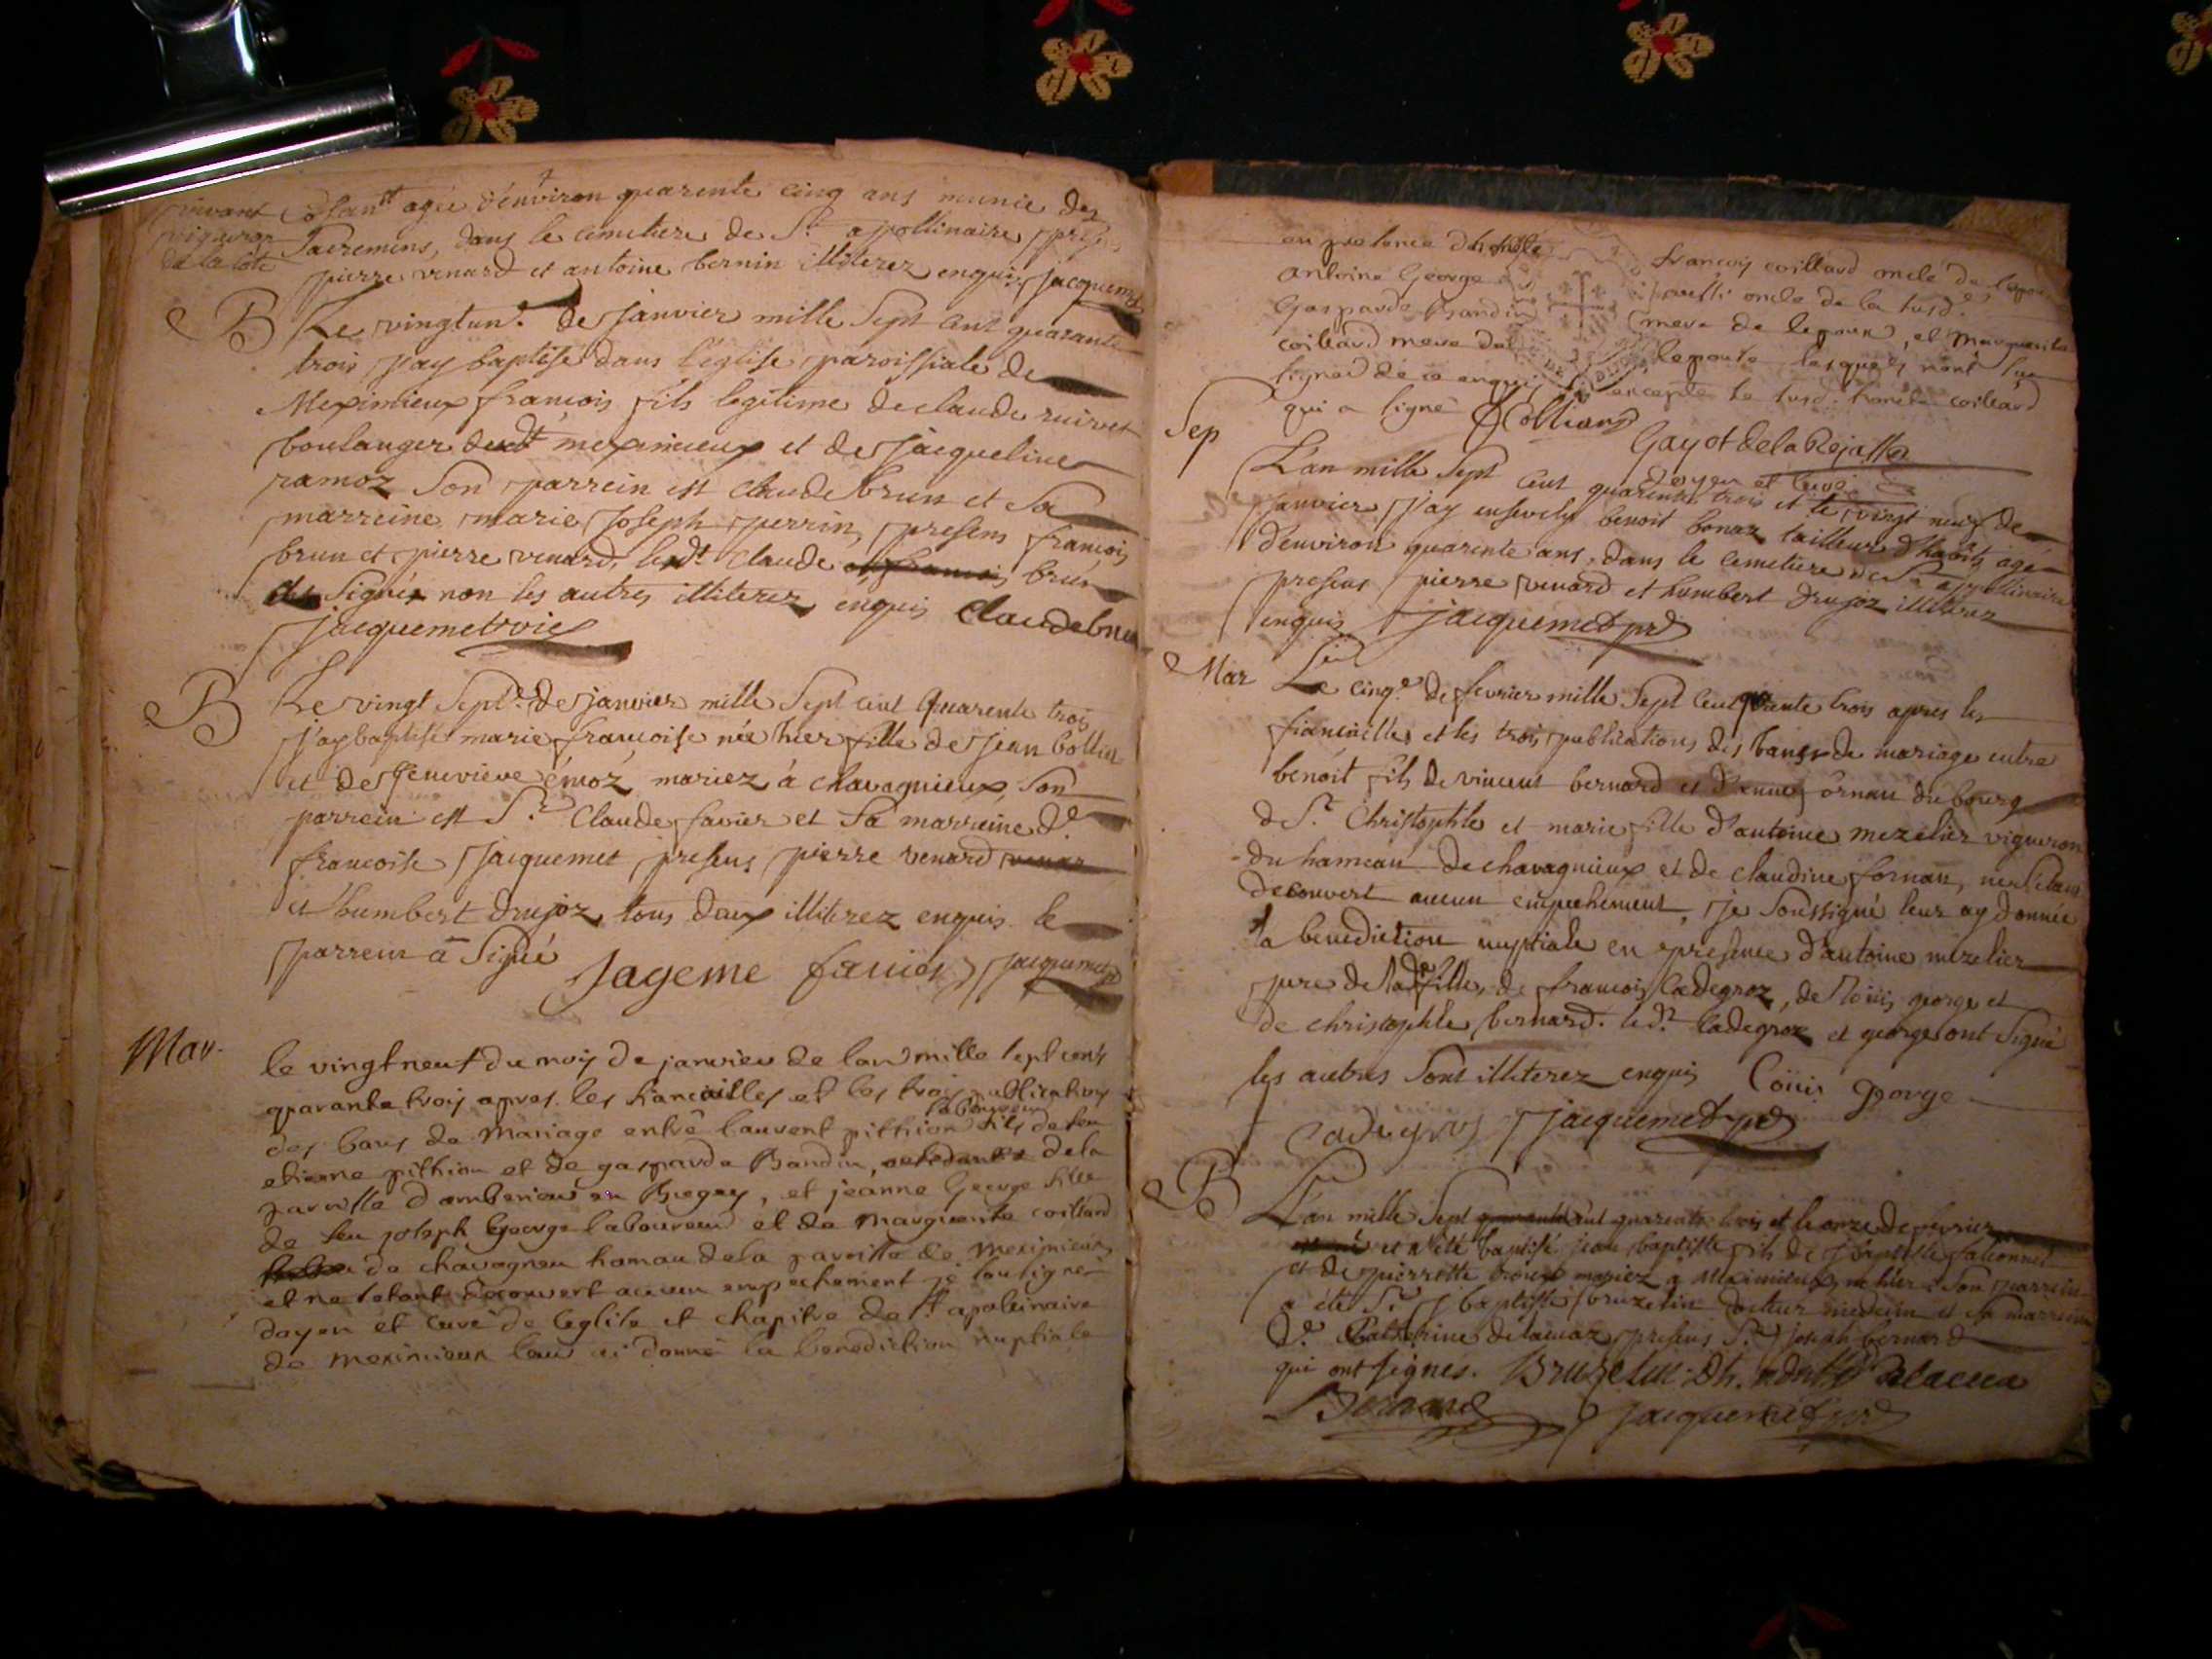 vivant
vigneron
de la cote
agée d'environ quarente cinq ans munie des
Sacremens, dans le cimetiere de St. apollinaire, presens
pierre venard et antoine bernin illiterez enquis, jacquemet
B
Le vingtun.e de janvier mille Sept cent quarante
trois j'ay baptisé dans l'église paroissiale de
Meximieux francois fils legitime de claude ruivet
boulanger dudt meximieux et de jacqueline
ramoz Son parrein est claude brun et Sa
marreine marie joseph perrin, presens francois
brun et pierre venard, ledt Claude brun
Signés non les autres illiterez enquis Claude brun
jacquemet vic
B
Le vingt Sept.e de janvier mille Sept cent quarente trois
j'ay baptisé marie francoise née hier fille de jean bollia
et de genevieve émoz mariez à chavagnieux, Son
parrein est S.r Claude favier et Sa marreine d.e
francoise jacquemet presens pierre venard
et humbert drujoz tous deux illiterez enquis le
parrein a Signé
Jageme favier jacquemet
Mar.
le vingt neuf du mois de janvier de lan mille sept cents
quarante trois apres les fiancailles et les trois publications
laboureur
des bans de mariage entre laurent pithion fils de feu
etienne pithion et de gasparde Bandin, de la
paroisse d'amberieu en Bugey, et jeanne George fille
de feu joseph George laboureur et de marguerite coillard
de chavagneu hamau de la paroisse de meximieux
et ne s'etant decouvert aucun empechement je soussigné
doyen et curé de leglise et chapitre de St apolinaire
de meximieux leur ai donné la benediction nuptiale
en presence d'honeste francois coillard oncle de l'epouse
antoine George aussi oncle de la susd.e
Gasparde Bandin mere de lepoux, et marguerite
coillard mere de lepouse lesquels n'ont su
signer de ce enquis excepté le susd. honeste coillard
qui a signé
F Colliard
Gayot de la Rejasse
doyen et curé
Sep
L'an mille Sept cent quarente trois et le vingt neuf de
janvier j'ay ensevely benoit bonaz tailleur d'habits agé
d'environ quarente ans, dans le cemetiere de St. apollinaire
presens pierre venard et humbert drujoz illiterez
enquis jacquemet prd
Mar
Le cinq.e de fevrier mille Sept cent quarente trois apres les
fiancailles et les trois publications des bans de mariage entre
benoit fils de vincent bernard et d'anne fornan du bourg
de S.t Christophle et marie fille d'antoine mezelier vigneron
du hameau de chavagnieux et de claudine fornan, ne s'etant
decouvert aucun empechement, je Soussigné leur ay donnée
la benediction nuptiale en presence d'antoine mezelier
pere de lad.e fille, de francois Cadegroz, de Loüis george et
de christophle bernard. led.t Cadegroz et george ont Signé
les autres Sont illiterez enquis Loüis george
Cadegros jacquemet prd
B
L'an mille Sept cent quarente trois et le onze de fevrier
a été baptisé jean baptiste fils de falconnet
et de pierrette mariez a Meximieux né hier. Son parrein
a été S.r J baptiste bruzelin docteur medecin et Sa marreine
D.e Catherine delacuaz presens S.r joseph bernard
qui ont signes. Bruzelin
Bernard jacquemet prd